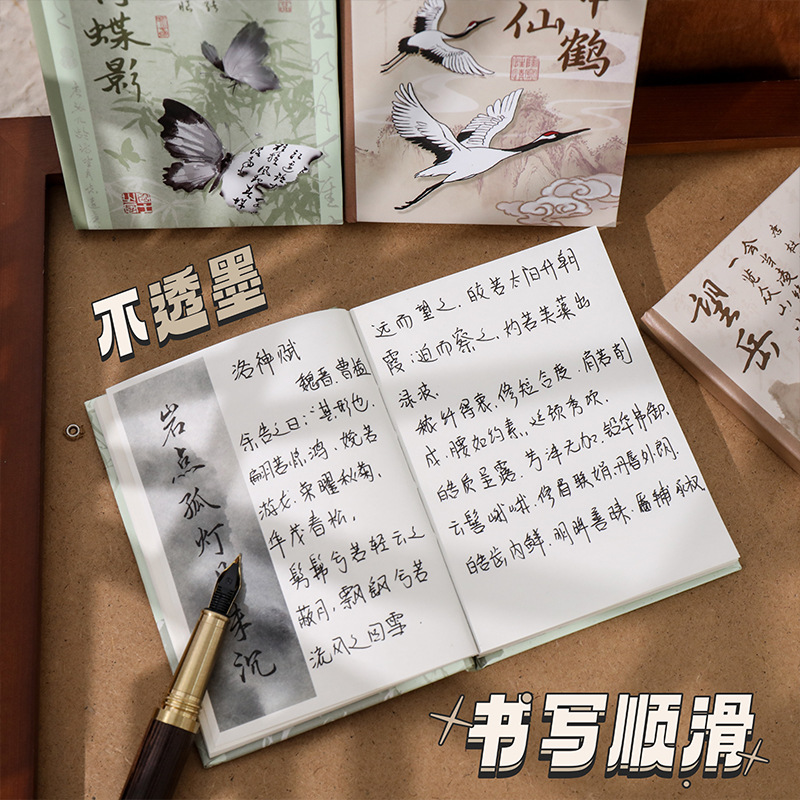 蝶影
仙鹤
望岳
会当凌
一览众山
不透墨
岩点孤灯
沉
洛神赋
魏晋.曹植
余告之曰:其形也.
翩若惊鸿,婉若
游龙,荣曜秋菊,
华茂春松,
髣髴兮若轻云之
蔽月,飘飖兮若
流风之回雪
远而望之,皎若太阳升朝
霞;迫而察之,灼若芙蕖出
渌波.
秾纤得衷,修短合度,肩若削
成,腰如约素,延颈秀项.
皓质呈露.芳泽无加,铅华弗御.
云髻峨峨,修眉联娟,丹唇外朗,
皓齿内鲜,明眸善睐,靥辅承权
书写顺滑